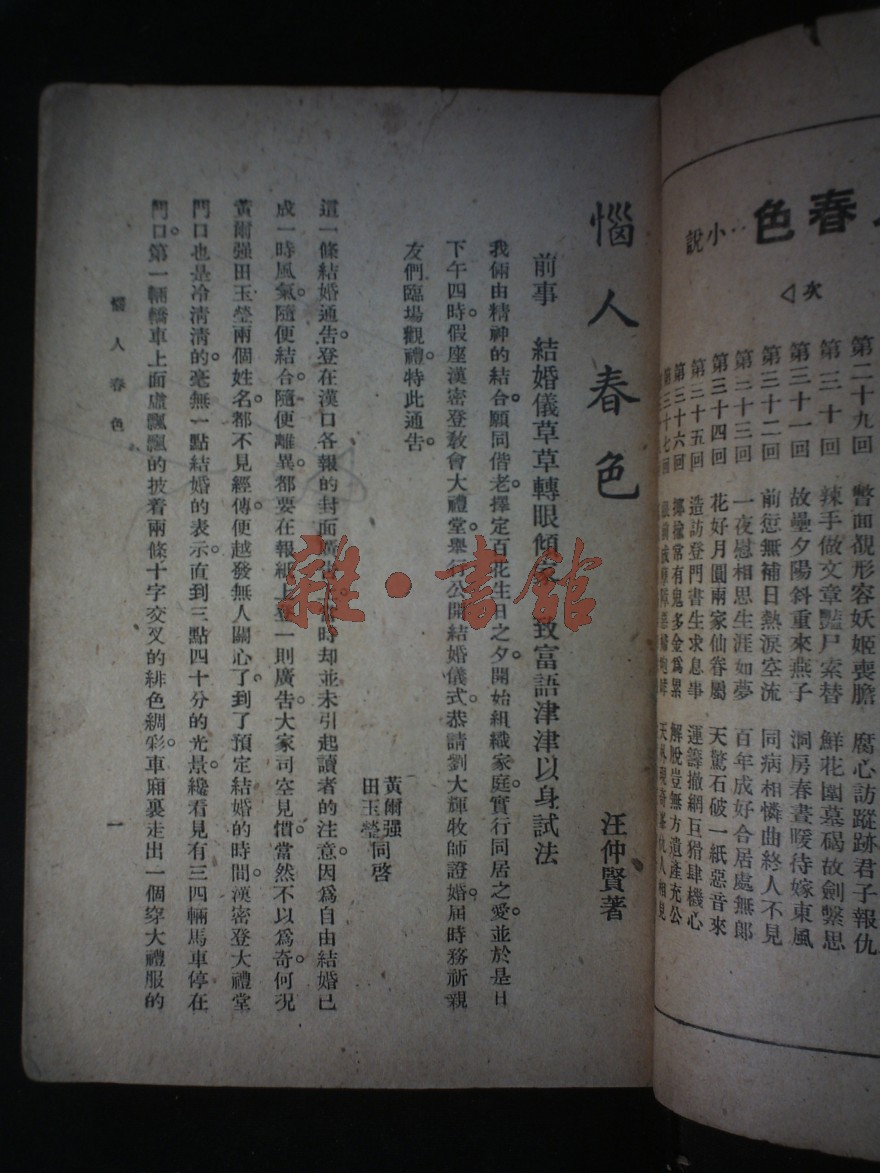 春色
小說
次
第二十九回 瞥面覩形容妖姬喪膽 腐心訪蹤跡君子報仇
第三十回 辣手做文章豔尸索替 鮮花圍墓碣故劍繫思
第三十一回 故壘夕陽斜重來燕子 洞房春晝暖待嫁東風
第三十二回 前愆無補日熱淚空流 同病相憐曲終人不見
第三十三回 一夜慰相思生涯如夢 百年成好合居處無郎
第三十四回 花好月圓兩家仙眷屬 天驚石破一紙惡音來
第三十五回 造訪登門書生求息事 運籌撤網巨猾肆機心
第三十六回 揶揄常有鬼多金爲累 解脫豈無方遺產充公
第三十七回
惱人春色
汪仲賢著
前事 結婚儀草草轉眼傾家 致富語津津以身試法
我倆由精神的結合。願同偕老。擇定百花生日之夕。開始組織家庭。實行同居之愛。並於是日
下午四時。假座漢密登敎會大禮堂。舉行公開結婚儀式。恭請劉大輝牧師證婚。屆時務祈親
友們臨場觀禮。特此通告。
黃爾强
田玉瑩同啓
這一條結婚通告。登在漢口各報的封面廣告。時却並未引起讀者的注意。因爲自由結婚已
成一時風氣。隨便結合。隨便離異。都要在報紙上登一則廣告。大家司空見慣。當然不以爲奇。何况
黃爾强田玉瑩兩個姓名。都不見經傳。便越發無人關心了。到了預定結婚的時間。漢密登大禮堂
門口也是冷清清的。毫無一點結婚的表示。直到三點四十分的光景。纔看見有三四輛馬車停在
門口。第一輛轎車上面虛飄飄的披着兩條十字交叉的緋色綢彩。車廂裏走出一個穿大禮服的
惱人春色
一
雜·書館